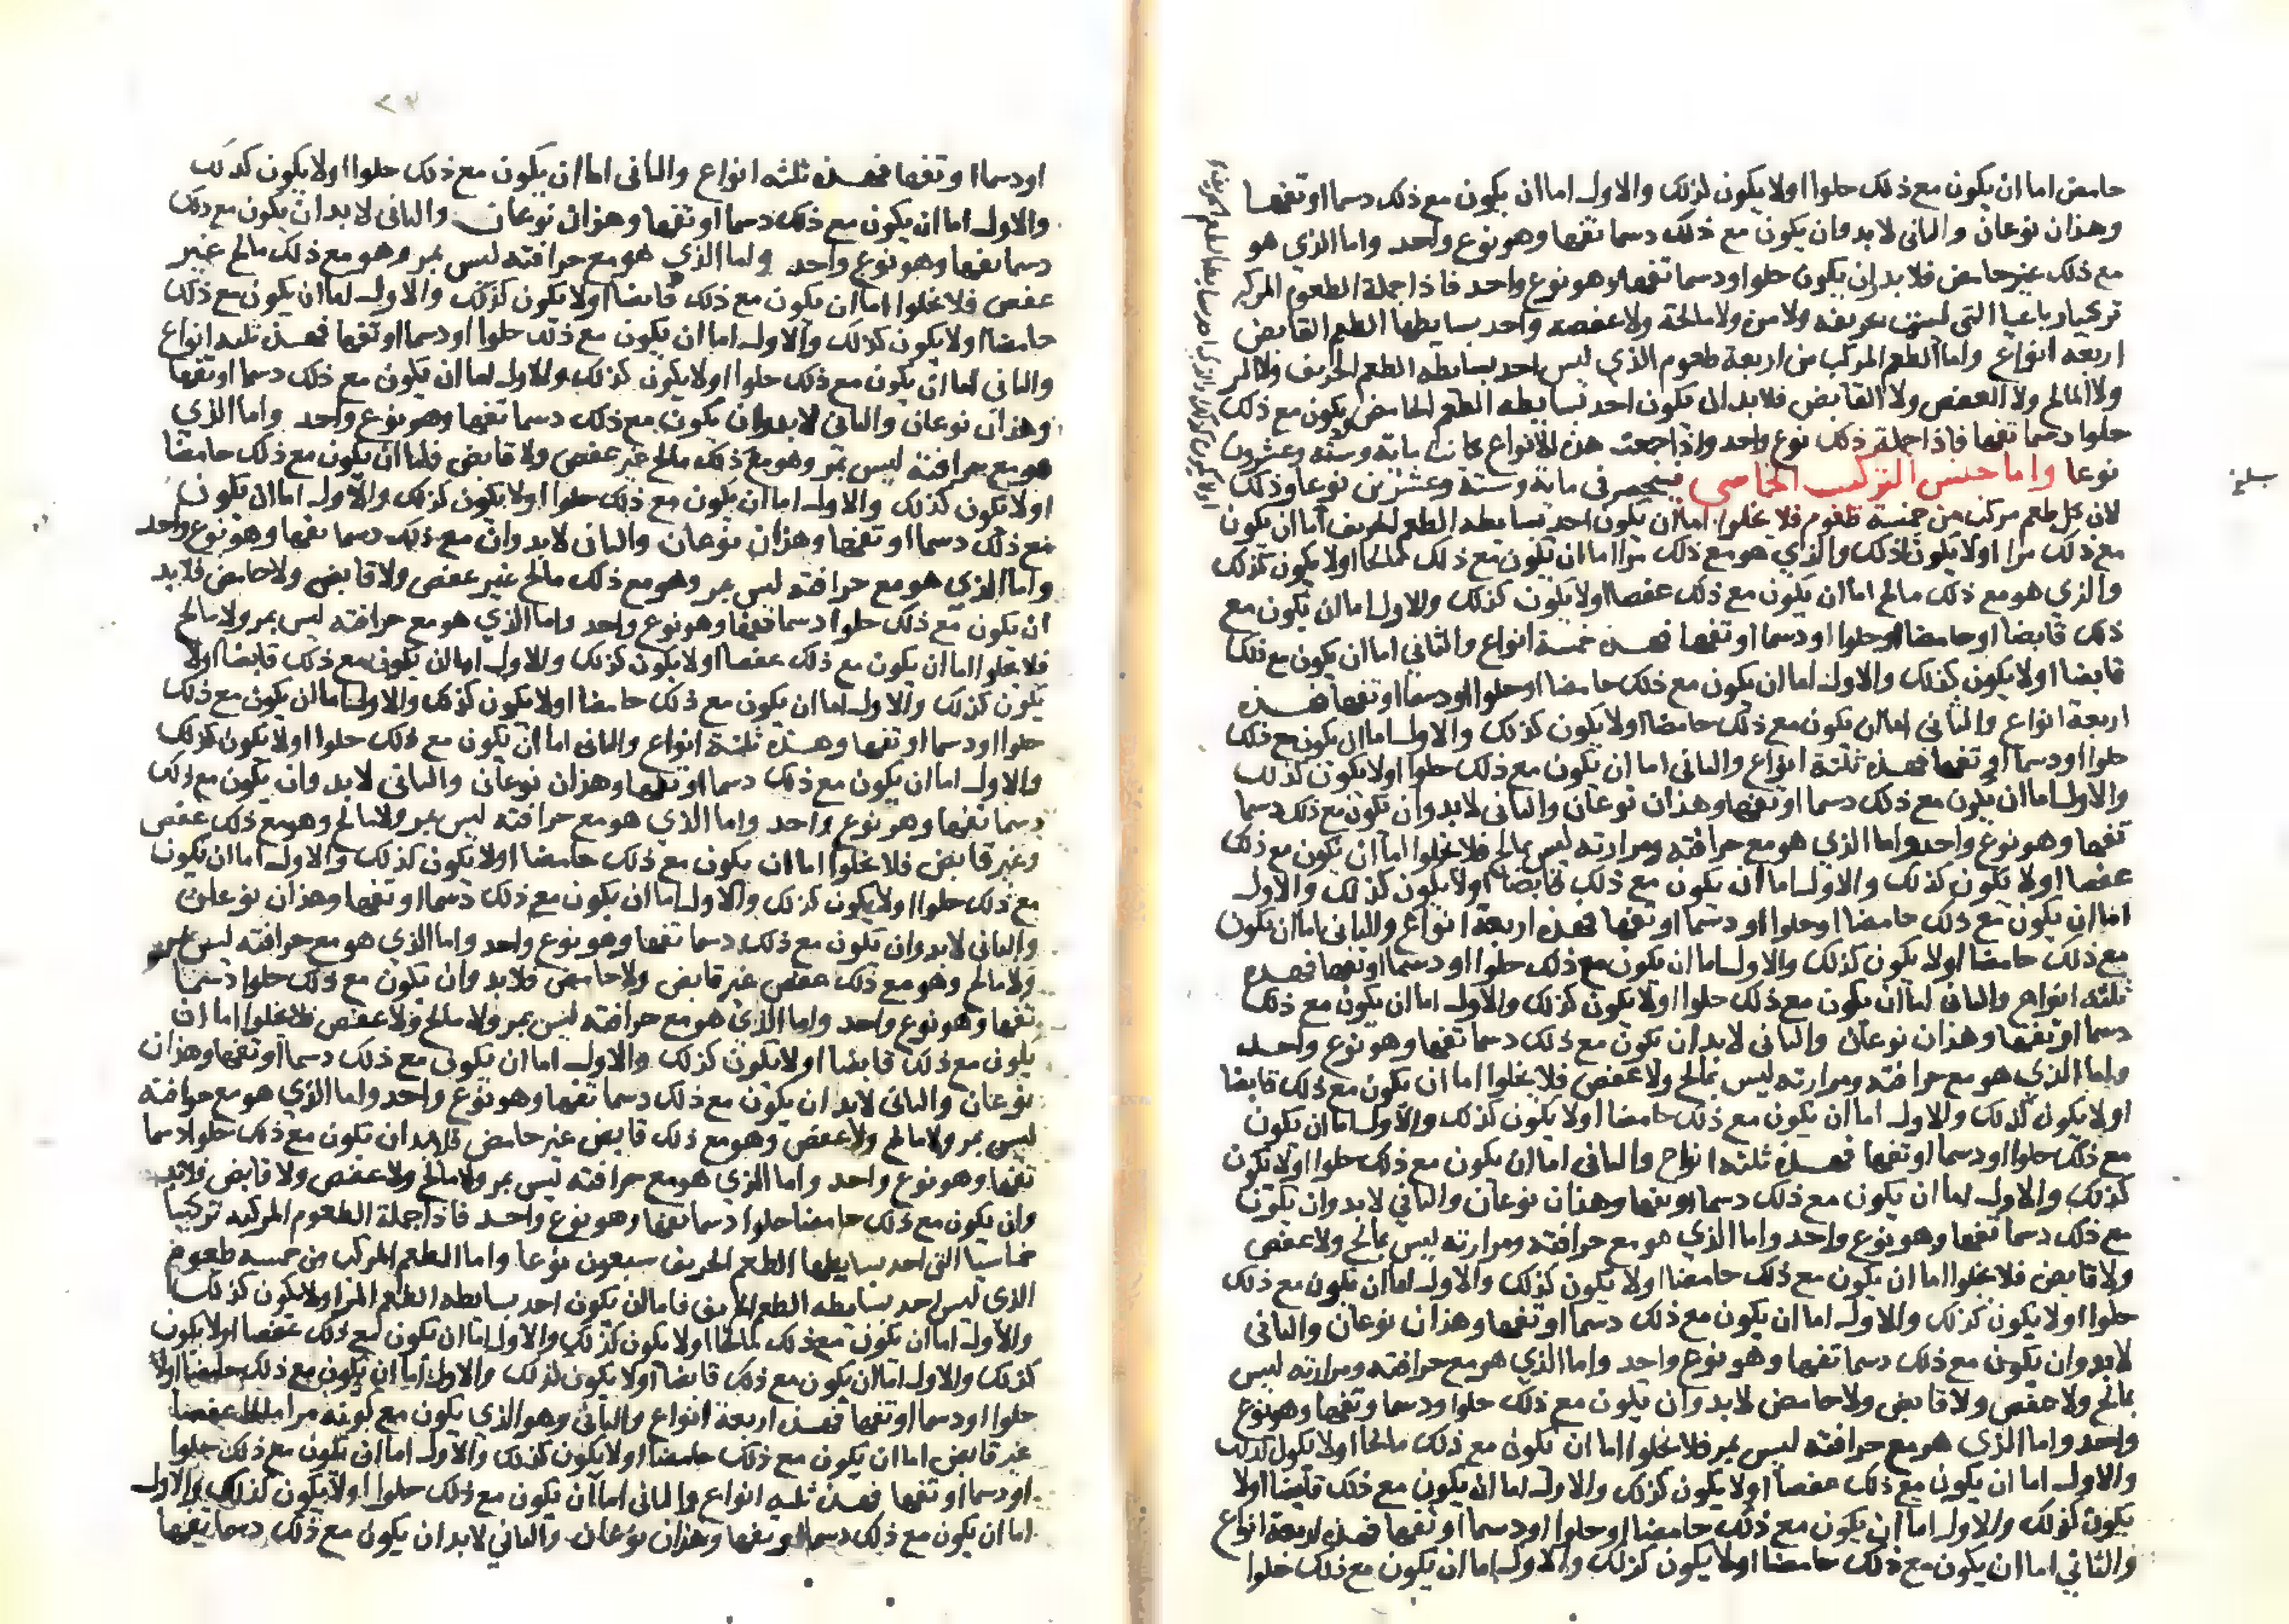 حامض اما ان يكون مع ذلك حلوا اولا يكون كذلك والاول اما ان يكون مع ذلك دسما او تفها
وهذان نوعان والثانى لابد وان يكون مع ذلك دسما تفها وهو نوع واحد واما الذي هو
مع ذلك غير حامض فلا بد ان يكون حلوا ودسما تفها وهو نوع واحد فاذا جملة الطعوم المركبه
تركيبا رباعيا التى ليست بحريفه ولا مرة ولا مالحة ولا عفصه واحد بسايطها الطعم القابض
اربعه انواع واما الطعم المركب من اربعة طعوم الذي ليس احد بسايطه الطعم الحريف ولا المر
ولا المالح ولا العفص ولا القابض فلا بد ان يكون احد بسايطه الطعم الحامض ويكون مع ذلك
حلوا دسما تفها فاذا جملة ذلك نوع واحد واذا جمعت هذه الانواع كانت ماية وستة وعشرون
نوعا واما جنس التركيب الخماسى فينحصر فى ماية وستة وعشرين نوعا وذلك
لان كل طعم مركب من خمسة طعوم فلا يخلوا اما ان يكون احد بسايطه الطعم الحريف اما ان يكون
مع ذلك مرا اولا يكون كذلك والذي هو مع ذلك مرا اما ان يكون مع ذلك مالحا اولا يكون كذلك
والذي هو مع ذلك مالح اما ان يكون مع ذلك عفصا اولا يكون كذلك والاول اما ان يكون مع
ذلك قابضا او حامضا او حلوا او دسما او تفها فهذه خمسة انواع والثاني اما ان يكون مع ذلك
قابضا اولا يكون كذلك والاول اما ان يكون مع ذلك حامضا او حلوا او دسما او تفها فهذه
اربعة انواع والثانى اما ان يكون مع ذلك حامضا اولا يكون كذلك والاول اما ان يكون مع ذلك
حلوا او دسما او تفها فهذه ثلثة انواع والثانى اما ان يكون مع ذلك حلوا اولا يكون كذلك
والاول اما ان يكون مع ذلك دسما او تفها وهذان نوعان والثانى لابد وان يكون مع ذلك دسما
تفها وهو نوع واحد واما الذي هو مع حرافته ومرارته ليس بمالح فلا يخلوا اما ان يكون مع ذلك
عفصا اولا يكون كذلك والاول اما ان يكون مع ذلك قابضا اولا يكون كذلك والاول
اما ان يكون مع ذلك حامضا او حلوا او دسما او تفها فهذه اربعة انواع والثانى اما ان يكون
مع ذلك حامضا اولا يكون كذلك والاول اما ان يكون مع ذلك حلوا او دسما او تفها فهذه
ثلثه انواع والثانى اما ان يكون مع ذلك حلوا اولا يكون كذلك والاول اما ان يكون مع ذلك
دسما او تفها وهذان نوعان والثانى لابد ان يكون مع ذلك دسما تفها وهو نوع واحد
واما الذي هو مع حرافته ومرارته ليس بمالح ولا عفص فلا يخلوا اما ان يكون مع ذلك قابضا
اولا يكون كذلك والاول اما ان يكون مع ذلك حامضا اولا يكون كذلك والاول اما ان يكون
مع ذلك حلوا او دسما او تفها فهذه ثلثه انواع والثانى اما ان يكون مع ذلك حلوا اولا يكون
كذلك والاول اما ان يكون مع ذلك دسما او تفها وهذان نوعان والثاني لابد وان يكون
مع ذلك دسما تفها وهو نوع واحد واما الذي هو مع حرافته ومرارته ليس بمالح ولا عفص
ولا قابض فلا يخلوا اما ان يكون مع ذلك حامضا اولا يكون كذلك والاول اما ان يكون مع ذلك
حلوا اولا يكون كذلك والاول اما ان يكون مع ذلك دسما او تفها وهذان نوعان والثانى
لابد وان يكون مع ذلك دسما تفها وهو نوع واحد واما الذي هو مع حرافته ومرارته ليس
بمالح ولا عفص ولا قابض ولا حامض لابد وان يكون مع ذلك حلوا ودسما وتفها وهو نوع
واحد واما الذي هو مع حرافته ليس بمر فلا يخلوا اما ان يكون مع ذلك مالحا اولا يكون كذلك
والاول اما ان يكون مع ذلك عفصا اولا يكون كذلك والاول اما ان يكون مع ذلك قابضا اولا
يكون كذلك والاول اما ان يكون مع ذلك حامضا او حلوا او دسما او تفها فهذه اربعة انواع
والثاني اما ان يكون مع ذلك حامضا اولا يكون كذلك والاول اما ان يكون مع ذلك حلوا
او دسما او تفها فهذه ثلثه انواع والثانى اما ان يكون مع ذلك حلوا اولا يكون كذلك
والاول اما ان يكون مع ذلك دسما او تفها وهذان نوعان والثانى لابد ان يكون مع ذلك
دسما تفها وهو نوع واحد واما الذي هو مع حرافته ليس بمر وهو مع ذلك مالح غير
عفص فلا يخلوا اما ان يكون مع ذلك قابضا اولا يكون كذلك والاول اما ان يكون مع ذلك
حامضا اولا يكون كذلك والاول اما ان يكون مع ذلك حلوا او دسما او تفها فهذه ثلثه انواع
والثانى اما ان يكون مع ذلك حلوا اولا يكون كذلك والاول اما ان يكون مع ذلك دسما او تفها
وهذان نوعان والثانى لابد وان يكون مع ذلك دسما تفها وهو نوع واحد واما الذي
هو مع حرافته ليس بمر وهو مع ذلك مالح غير عفص ولا قابض فاما ان يكون مع ذلك حامضا
اولا يكون كذلك والاول اما ان يكون مع ذلك حلوا اولا يكون كذلك والاول اما ان يكون
مع ذلك دسما او تفها وهذان نوعان والثانى لابد وان مع ذلك دسما تفها وهو نوع واحد
واما الذي هو مع حرافته ليس بمر وهو مع ذلك مالح غير عفص ولا قابض ولا حامض فلا بد
ان يكون مع ذلك حلوا دسما تفها وهو نوع واحد واما الذي هو مع حرافته ليس بمر ولا مالح
فلا يخلوا اما ان يكون مع ذلك عفصا اولا يكون كذلك والاول اما ان يكون مع ذلك قابضا اولا
يكون كذلك والاول اما ان يكون مع ذلك حامضا اولا يكون كذلك والاول اما ان يكون مع ذلك
حلوا او دسما او تفها وهذه ثلثة انواع والثانى اما ان يكون مع ذلك حلوا اولا يكون كذلك
والاول اما ان يكون مع ذلك دسما او تفها وهذان نوعان والثانى لابد وان يكون مع ذلك
دسما تفها وهو نوع واحد واما الذي هو مع حرافته ليس بمر ولا مالح وهو مع ذلك عفص
وغير قابض فلا يخلوا اما ان يكون مع ذلك حامضا اولا يكون كذلك والاول اما ان يكون
مع ذلك حلوا اولا يكون كذلك والاول اما ان يكون مع ذلك دسما او تفها وهذان نوعان
والثانى لابد وان يكون مع ذلك دسما تفها وهو نوع واحد واما الذي هو مع حرافته ليس بمر
ولا مالح وهو مع ذلك عفص غير قابض ولا حامض فلا بد وان يكون مع ذلك حلوا دسما
تفها وهو نوع واحد واما الذي هو مع حرافته ليس بمر ولا مالح ولا عفص فلا يخلوا اما ان
يكون مع ذلك قابضا اولا يكون كذلك والاول اما ان يكون مع ذلك دسما او تفها وهذان
نوعان والثانى لابد ان يكون مع ذلك دسما تفها وهو نوع واحد واما الذي هو مع حرافته
ليس بمر ولا مالح ولا عفص وهو مع ذلك قابض غير حامض فلا بد ان يكون مع ذلك حلوا دسما
تفها وهو نوع واحد واما الذي هو مع حرافته ليس بمر ولا مالح ولا عفص ولا قابض فلا بد
وان يكون مع ذلك حامضا حلوا دسما تفها وهو نوع واحد فاذا جملة الطعوم المركبه تركيبا
خماسيا التى احد بسايطها الطعم الحريف سبعون نوعا واما الطعم المركب من خمسه طعوم
الذي ليس احد بسايطه الطعم الحريف فاما ان يكون احد بسايطه الطعم المر اولا يكون كذلك
والاول اما ان يكون مع ذلك مالحا اولا يكون كذلك والاول اما ان يكون مع ذلك عفصا اولا يكون
كذلك والاول اما ان يكون مع ذلك قابضا اولا يكون كذلك والاول اما ان يكون مع ذلك حامضا اولا
حلوا او دسما او تفها فهذه اربعة انواع والثانى وهو الذي يكون مع كونه مرا مالحا عفصا
غير قابض اما ان يكون مع ذلك حامضا اولا يكون كذلك والاول اما ان يكون مع ذلك حلوا
او دسما او تفها فهذه ثلثه انواع والثانى اما ان يكون مع ذلك حلوا اولا يكون كذلك والاول
اما ان يكون مع ذلك دسما او تفها وهذان نوعان والثاني لابد ان يكون مع ذلك دسما تفها